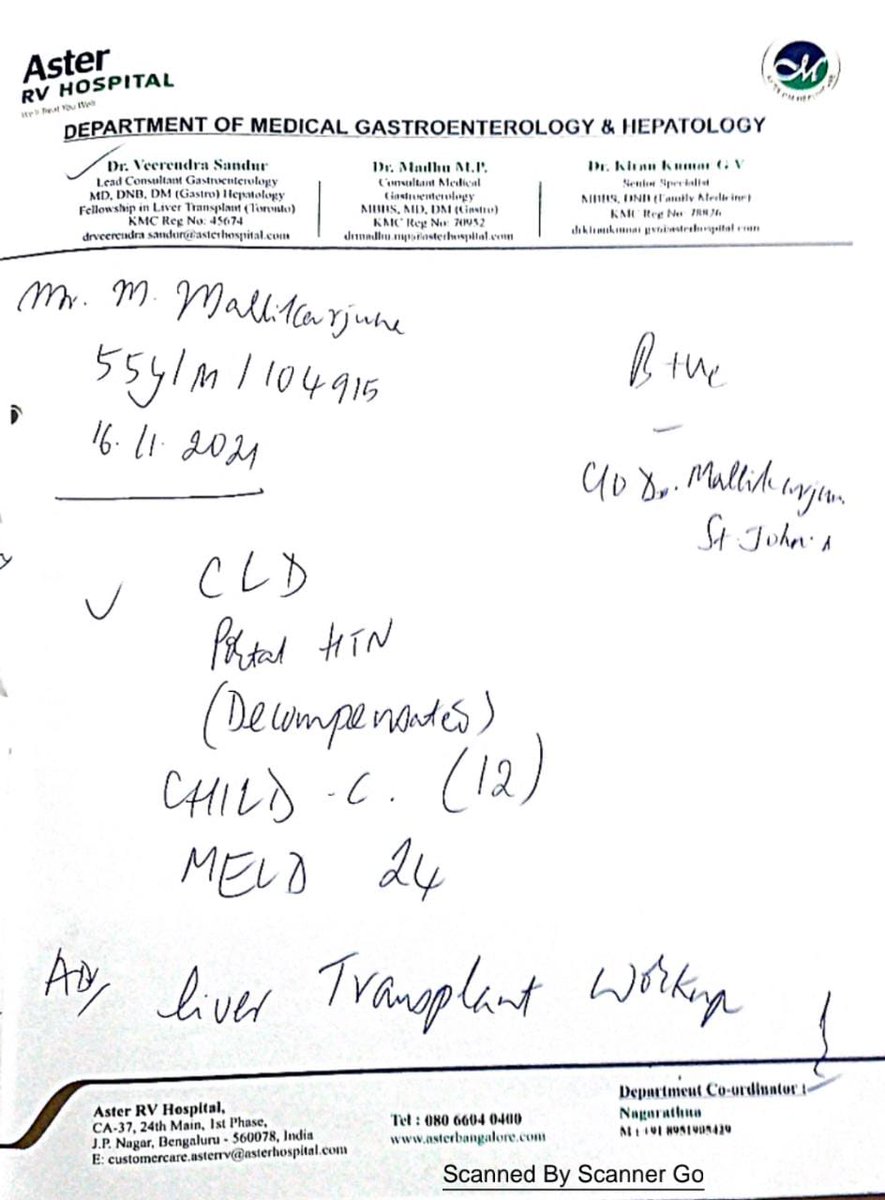 Aster
RV HOSPITAL
We'll Treat You Well
DEPARTMENT OF MEDICAL GASTROENTEROLOGY & HEPATOLOGY
Dr. Veerendra Sandur
Lead Consultant Gastroenterology
MD, DNB, DM (Gastro) Hepatology
Fellowship in Liver Transplant (Toronto)
KMC Reg No: 45674
drveerendra.sandur@asterhospital.com
Dr. Madhu M.P.
Consultant Medical
Gastroenterology
MBBS, MD, DM (Gastro)
KMC Reg No: 70952
drmadhu.mp@asterhospital.com
Dr. Kiran Kumar G V
Senior Specialist
MBBS, DNB (Family Medicine)
KMC Reg No
Mr. M. Mallikarjuna
55y/M/104915
16.11.2021
B +ve
C/O Dr. Mallikarjun
St. John's
CLD
Portal HTN
(Decompensated)
CHILD - C. (12)
MELD 24
Adv liver Transplant workup
Aster RV Hospital,
CA-37, 24th Main, 1st Phase,
J.P. Nagar, Bengaluru - 560078, India
E: customercare.asterrv@asterhospital.com
Tel : 080 6604 0400
www.asterbangalore.com
Department Co-ordinator :
Nagarathna
Scanned By Scanner Go